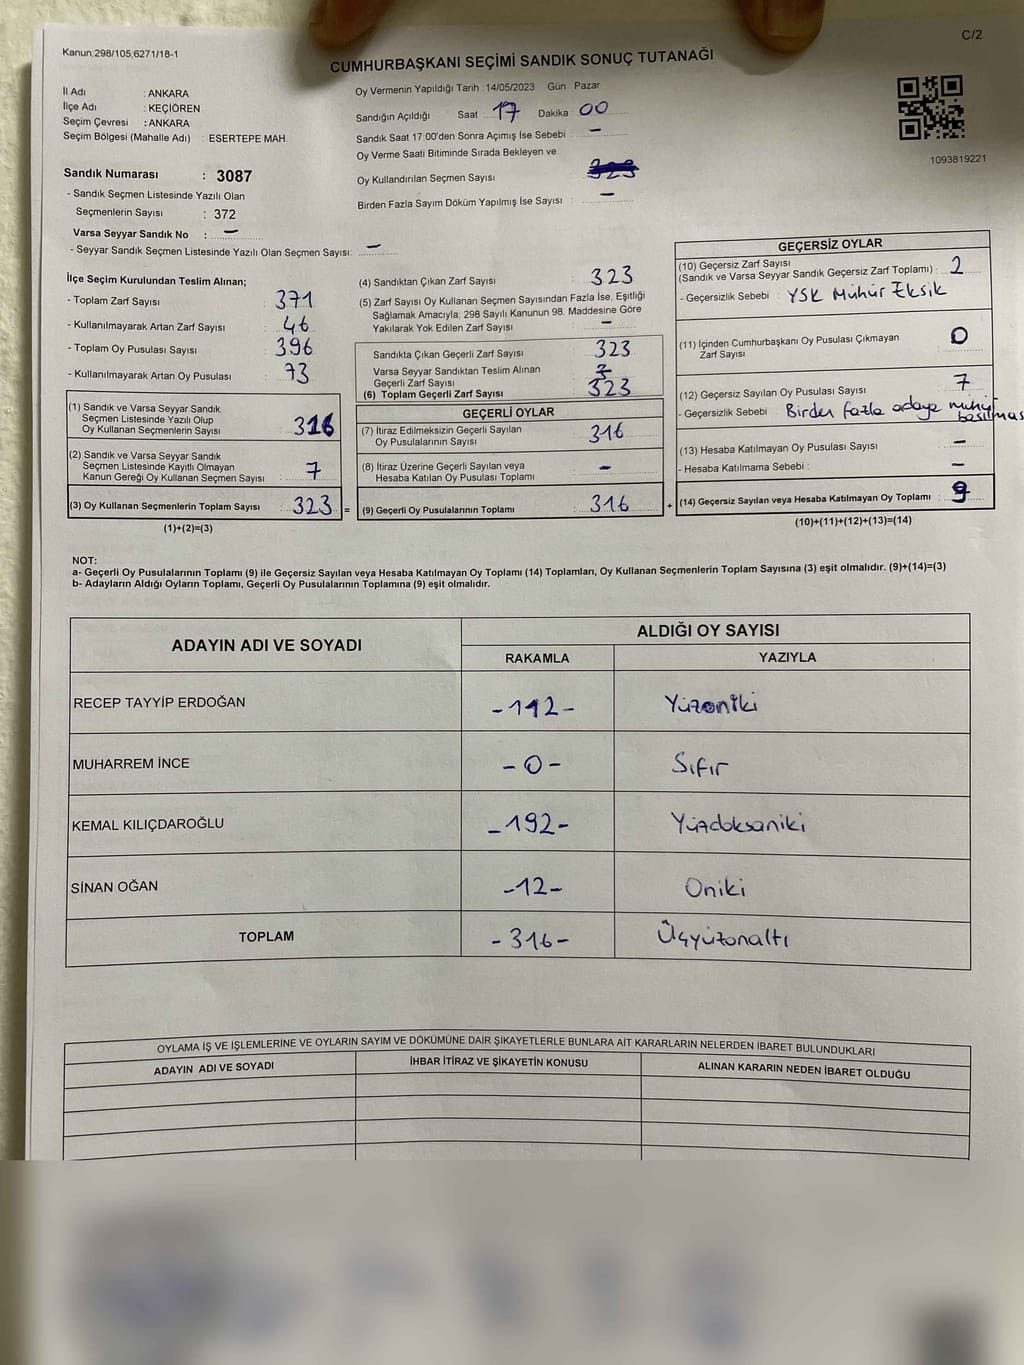 C/2
Kanun:298/105,6271/18-1
CUMHURBAŞKANI SEÇİMİ SANDIK SONUÇ TUTANAĞI
İl Adı : ANKARA
İlçe Adı : KEÇİÖREN
Seçim Çevresi : ANKARA
Seçim Bölgesi (Mahalle Adı) : ESERTEPE MAH.
Sandık Numarası : 3087
- Sandık Seçmen Listesinde Yazılı Olan
Seçmenlerin Sayısı : 372
Varsa Seyyar Sandık No : -
- Seyyar Sandık Seçmen Listesinde Yazılı Olan Seçmen Sayısı: -
Oy Vermenin Yapıldığı Tarih : 14/05/2023 Gün Pazar
Sandığın Açıldığı Saat 17 Dakika 00
Sandık Saat 17:00'den Sonra Açımış İse Sebebi : -
Oy Verme Saati Bitiminde Sırada Bekleyen ve
Oy Kullandırılan Seçmen Sayısı
Birden Fazla Sayım Döküm Yapılmış İse Sayısı : -
1093819221
İlçe Seçim Kurulundan Teslim Alınan;
- Toplam Zarf Sayısı : 371
- Kullanılmayarak Artan Zarf Sayısı : 46
- Toplam Oy Pusulası Sayısı : 396
- Kullanılmayarak Artan Oy Pusulası : 73
(1) Sandık ve Varsa Seyyar Sandık
Seçmen Listesinde Yazılı Olup
Oy Kullanan Seçmenlerin Sayısı : 316
(2) Sandık ve Varsa Seyyar Sandık
Seçmen Listesinde Kayıtlı Olmayan
Kanun Gereği Oy Kullanan Seçmen Sayısı : 7
(3) Oy Kullanan Seçmenlerin Toplam Sayısı : 323 =
(1)+(2)=(3)
(4) Sandıktan Çıkan Zarf Sayısı : 323
(5) Zarf Sayısı Oy Kullanan Seçmen Sayısından Fazla İse, Eşitliği
Sağlamak Amacıyla; 298 Sayılı Kanunun 98. Maddesine Göre
Yakılarak Yok Edilen Zarf Sayısı : -
Sandıkta Çıkan Geçerli Zarf Sayısı : 323
Varsa Seyyar Sandıktan Teslim Alınan
Geçerli Zarf Sayısı
(6) Toplam Geçerli Zarf Sayısı : 323
GEÇERLİ OYLAR
(7) İtiraz Edilmeksizin Geçerli Sayılan
Oy Pusulalarının Sayısı : 316
(8) İtiraz Üzerine Geçerli Sayılan veya
Hesaba Katılan Oy Pusulası Toplamı : -
(9) Geçerli Oy Pusulalarının Toplamı : 316 +
GEÇERSİZ OYLAR
(10) Geçersiz Zarf Sayısı
(Sandık ve Varsa Seyyar Sandık Geçersiz Zarf Toplamı) : 2
- Geçersizlik Sebebi : YSK Mühür Eksik
(11) İçinden Cumhurbaşkanı Oy Pusulası Çıkmayan
Zarf Sayısı : 0
(12) Geçersiz Sayılan Oy Pusulası Sayısı : 7
- Geçersizlik Sebebi : Birden fazla adaya mühür
basılması
(13) Hesaba Katılmayan Oy Pusulası Sayısı : -
- Hesaba Katılmama Sebebi : -
(14) Geçersiz Sayılan veya Hesaba Katılmayan Oy Toplamı : 9
(10)+(11)+(12)+(13)=(14)
NOT:
a- Geçerli Oy Pusulalarının Toplamı (9) ile Geçersiz Sayılan veya Hesaba Katılmayan Oy Toplamı (14) Toplamları, Oy Kullanan Seçmenlerin Toplam Sayısına (3) eşit olmalıdır. (9)+(14)=(3)
b- Adayların Aldığı Oyların Toplamı, Geçerli Oy Pusulalarının Toplamına (9) eşit olmalıdır.
ADAYIN ADI VE SOYADI ALDIĞI OY SAYISI
RAKAMLA YAZIYLA
RECEP TAYYİP ERDOĞAN -112- Yüzoniki
MUHARREM İNCE -0- Sıfır
KEMAL KILIÇDAROĞLU -192- Yüzdoksaniki
SİNAN OĞAN -12- Oniki
TOPLAM -316- Üçyüzonaltı
OYLAMA İŞ VE İŞLEMLERİNE VE OYLARIN SAYIM VE DÖKÜMÜNE DAİR ŞİKAYETLERLE BUNLARA AİT KARARLARIN NELERDEN İBARET BULUNDUKLARI
ADAYIN ADI VE SOYADI İHBAR İTİRAZ VE ŞİKAYETİN KONUSU ALINAN KARARIN NEDEN İBARET OLDUĞU